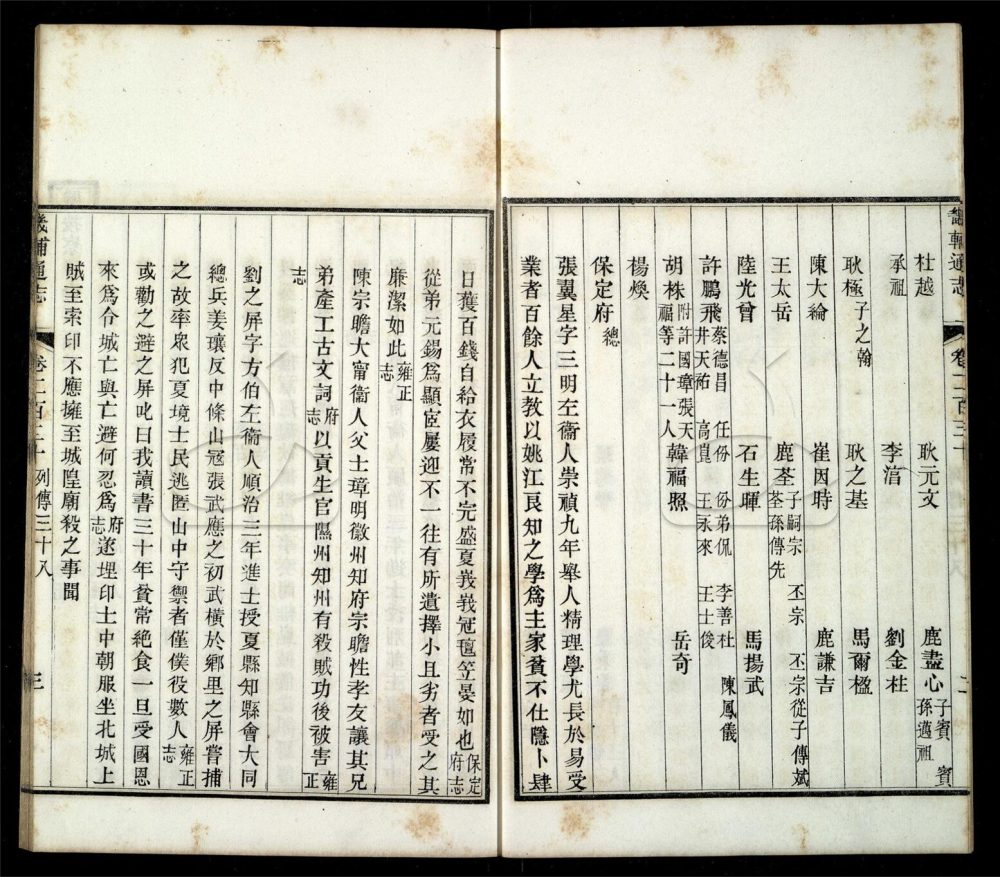 畿輔通志 卷二百三十 二
杜越 耿元文 鹿盡心 子賓 賓孫邁祖
承祖 李淯 劉金柱
耿極 子之翰 耿之基 馬爾楹
陳大綸 崔因時 鹿謙吉
王太岳 鹿荃 子嗣宗 丕宗 丕宗從子傳斌 荃孫傳先
陸光曾 石生暉 馬揚武
許鵬飛 蔡德昌 任份 份弟侃 李善杜 陳鳳儀 井天祐 高嵬 王永來 王士俊
胡株 附許國璋張天福等二十一人 韓福照 岳奇
楊煥
保定府 總
張翼星字三明左衞人崇禎九年舉人精理學尤長於易受
業者百餘人立教以姚江良知之學爲主家貧不仕隱卜肆
日獲百錢自給衣履常不完盛夏峩峩冠氊笠晏如也保定府志
從弟元錫爲顯宦屢迎不一往有所遺擇小且劣者受之其
廉潔如此雍正志
陳宗瞻大甯衞人父士璋明徽州知府宗瞻性孝友讓其兄
弟產工古文詞府志以貢生官隰州知州有殺賊功後被害雍正
志
劉之屏字方伯左衞人順治三年進士授夏縣知縣會大同
總兵姜瓖反中條山寇張武應之初武橫於鄉里之屏嘗捕
之故率衆犯夏境士民逃匿山中守禦者僅僕役數人雍正志
或勸之避之屏叱曰我讀書三十年貧常絶食一旦受國恩
來爲令城亡與亡避何忍爲府志遂埋印土中朝服坐北城上
賊至索印不應擁至城隍廟殺之事聞
畿輔通志 卷二百三十 列傳三十八 三